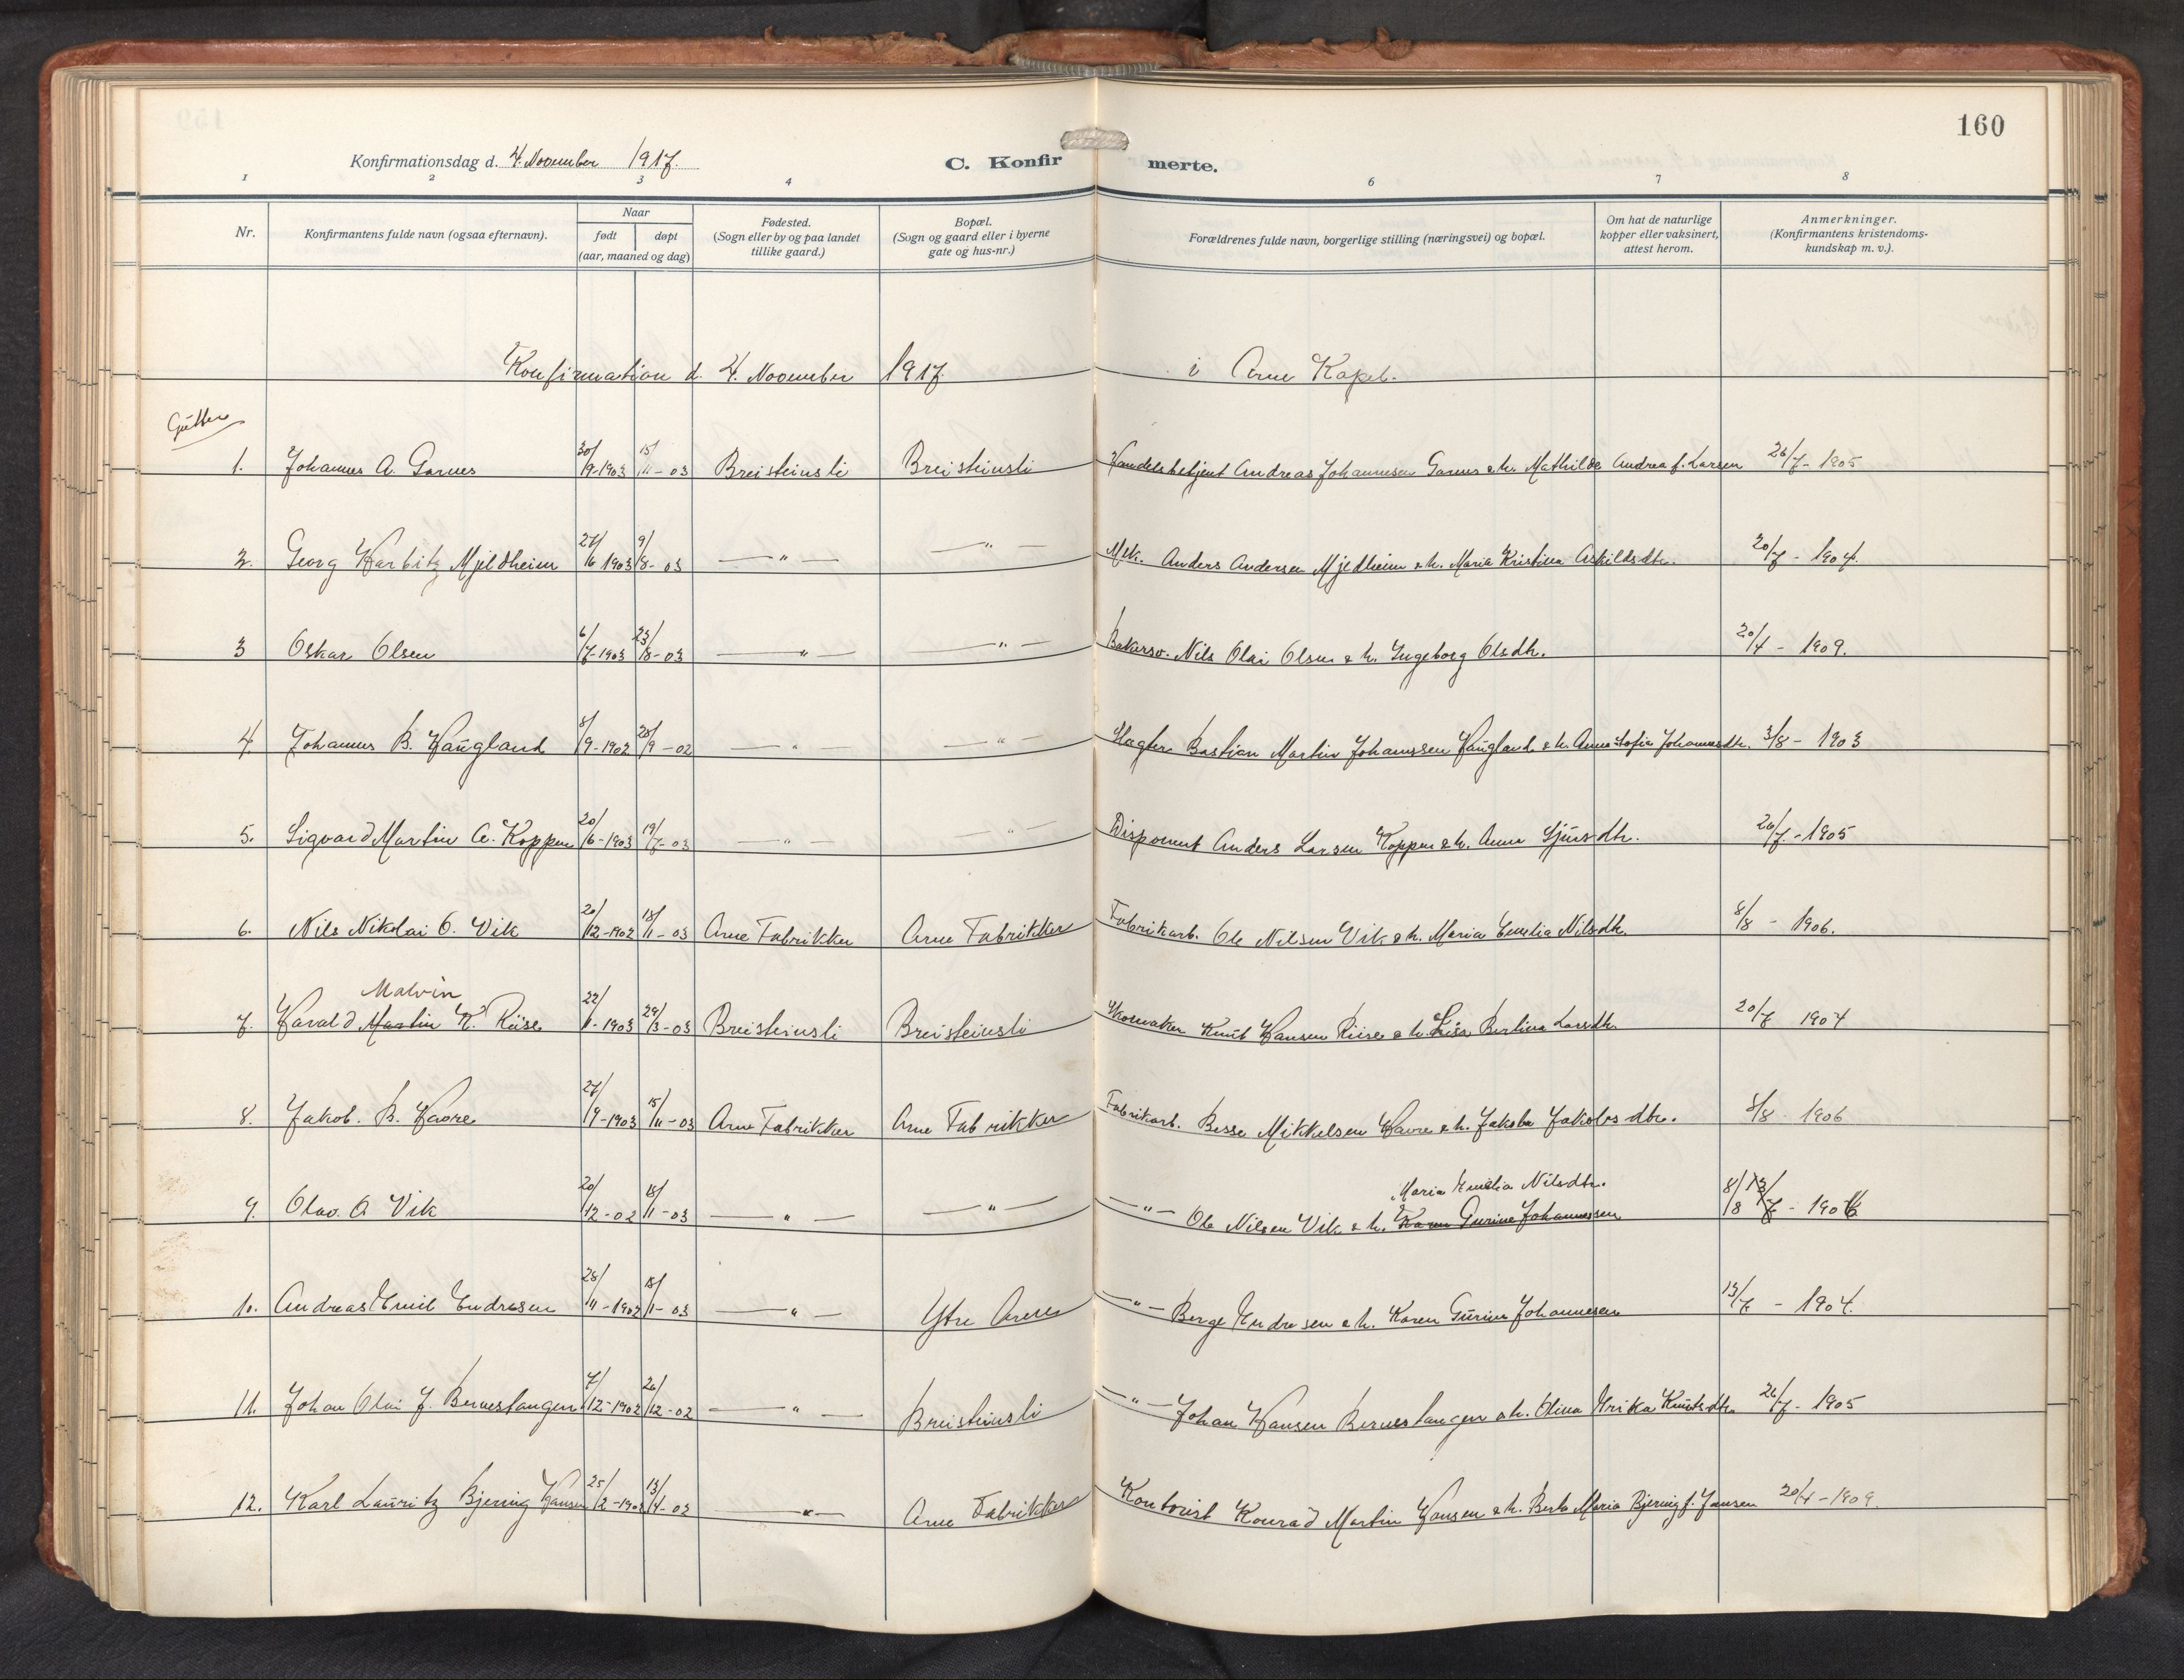 160
Konfirmationsdag d. 4. November 1917.
C. Konfirmerte.
1 2 3 4 6 7 8
Nr.
Konfirmantens fulde navn (ogsaa efternavn).
Naar
født døpt
(aar, maaned og dag)
Fødested.
(Sogn eller by og paa landet
tillike gaard.)
Bopæl.
(Sogn og gaard eller i byerne
gate og hus-nr.)
Forældrenes fulde navn, borgerlige stilling (næringsvei) og bopæl.
Om hat de naturlige
kopper eller vaksinert,
attest herom.
Anmerkninger.
(Konfirmantens kristendoms-
kundskap m. v.).
Konfirmation d. 4. November 1917 i Arne Kapel.
Gutter
1. Johannes A. Garnes 30/9-1903 15/11-03 Breisteinsli Breisteinsli Handelsbetjent Andreas Johannesen Garnes & h. Mathilde Andrea f. Larsen 26/7-1905
2. Georg Harbitz Mjeldheim 27/6 1903 9/8-03 —"— —"— Mek. Anders Andersen Mjeldheim & h. Maria Kristina Askildsdtr. 20/7-1904.
3 Oskar Olsen 6/7-1903 23/8-03 —"— —"— Bakersv. Nils Olai Olsen & h. Ingeborg Olsdtr. 20/4-1909.
4. Johannes B. Haugland 8/9-1902 28/9-02 —"— —"— Slagter Bastian Martin Johanssen Haugland & h. Anna Sofia Johannesdtr. 3/8-1903
5. Sigvard Martin A. Koppen 20/6-1903 19/7-03 —"— —"— Disponent Anders Larsen Koppen & h. Anna Sjursdtr. 26/7-1905
6. Nils Nikolai O. Vik 20/12-1902 18/1-03 Arne Fabrikker Arne Fabrikker Fabrikarb. Ole Nilsen Vik & h. Maria Emelia Nilsdtr. 8/8-1906.
Malvin
7. Harald Martin K. Riise 22/1-1903 29/3-03 Breisteinsli Breisteinsli Skomaker Knut Hansen Riise & h. Lisa Berlina Larsdtr. 20/7 1904
8. Jakob. B. Havre 27/9-1903 15/11-03 Arne Fabrikker Arne Fabrikker Fabrikarb. Besse Mikkelsen Havre & h. Jakoba Jakobsdtr. 8/8 1906
Maria Emelia Nilsdtr.
9. Olav. O Vik 20/12-02 18/1-03 —"— —"— —"— Ole Nilsen Vik & h. Karen Gurine Johannessen 8/8 13/7-1906
10. Andreas Emil Endresen 28/11-1902 18/1-03 —"— Ytre Arne —"— Berge Endresen & h. Karen Gurine Johannesen 13/7-1904.
11. Johan Olai J. Berneslangen 7/12-1902 26/12-02 —"— Breisteinsli —"— Johan Hansen Berneslangen & h. Olina Erika Knutsdtr. 26/7-1905
12. Karl Lauritz Bjering Hansen 25/2-1902 13/4-02 —"— Arne Fabrikker Kontorist Konrad Martin Hansen & h. Berta Maria Bjering f. Jansen 20/4-1909.